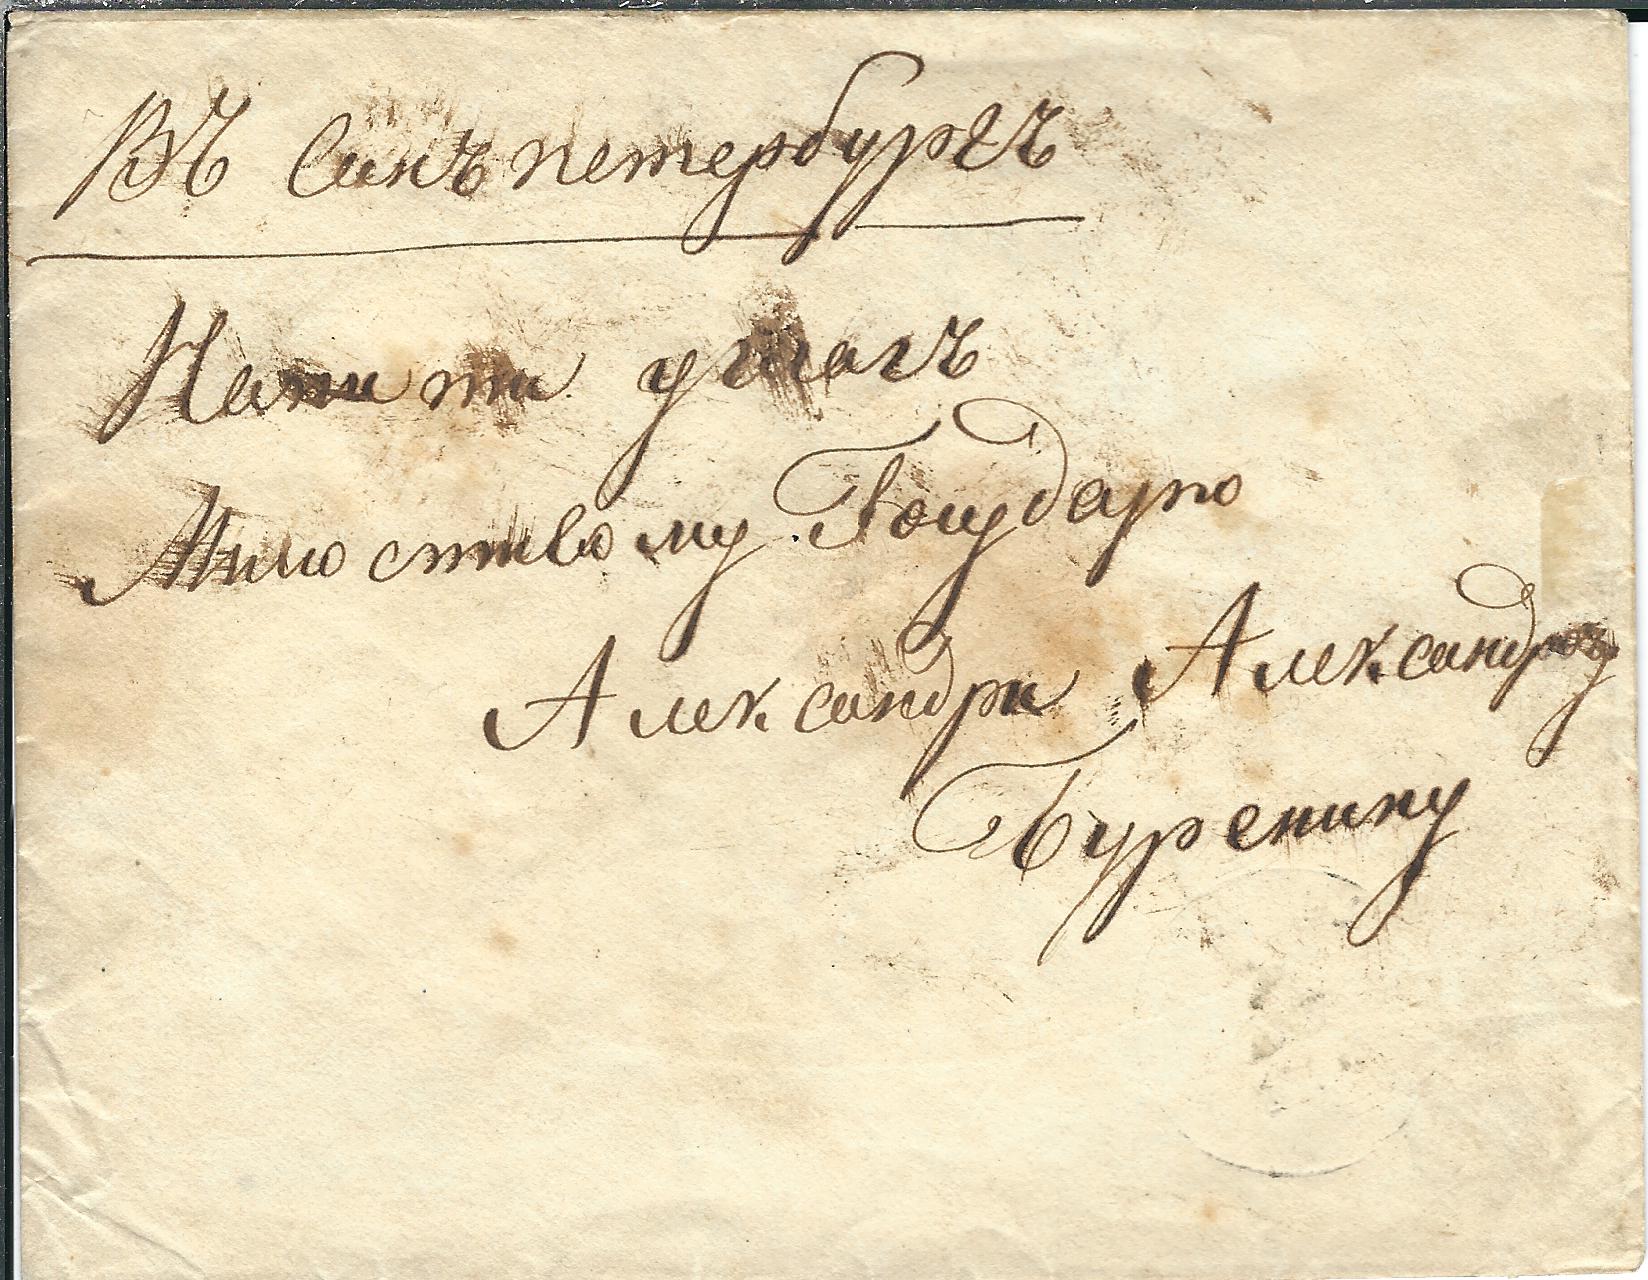 Въ Санкъпетербургъ
На пяти углахъ
Милостивому Государю
Александру Александрычу
Буренину